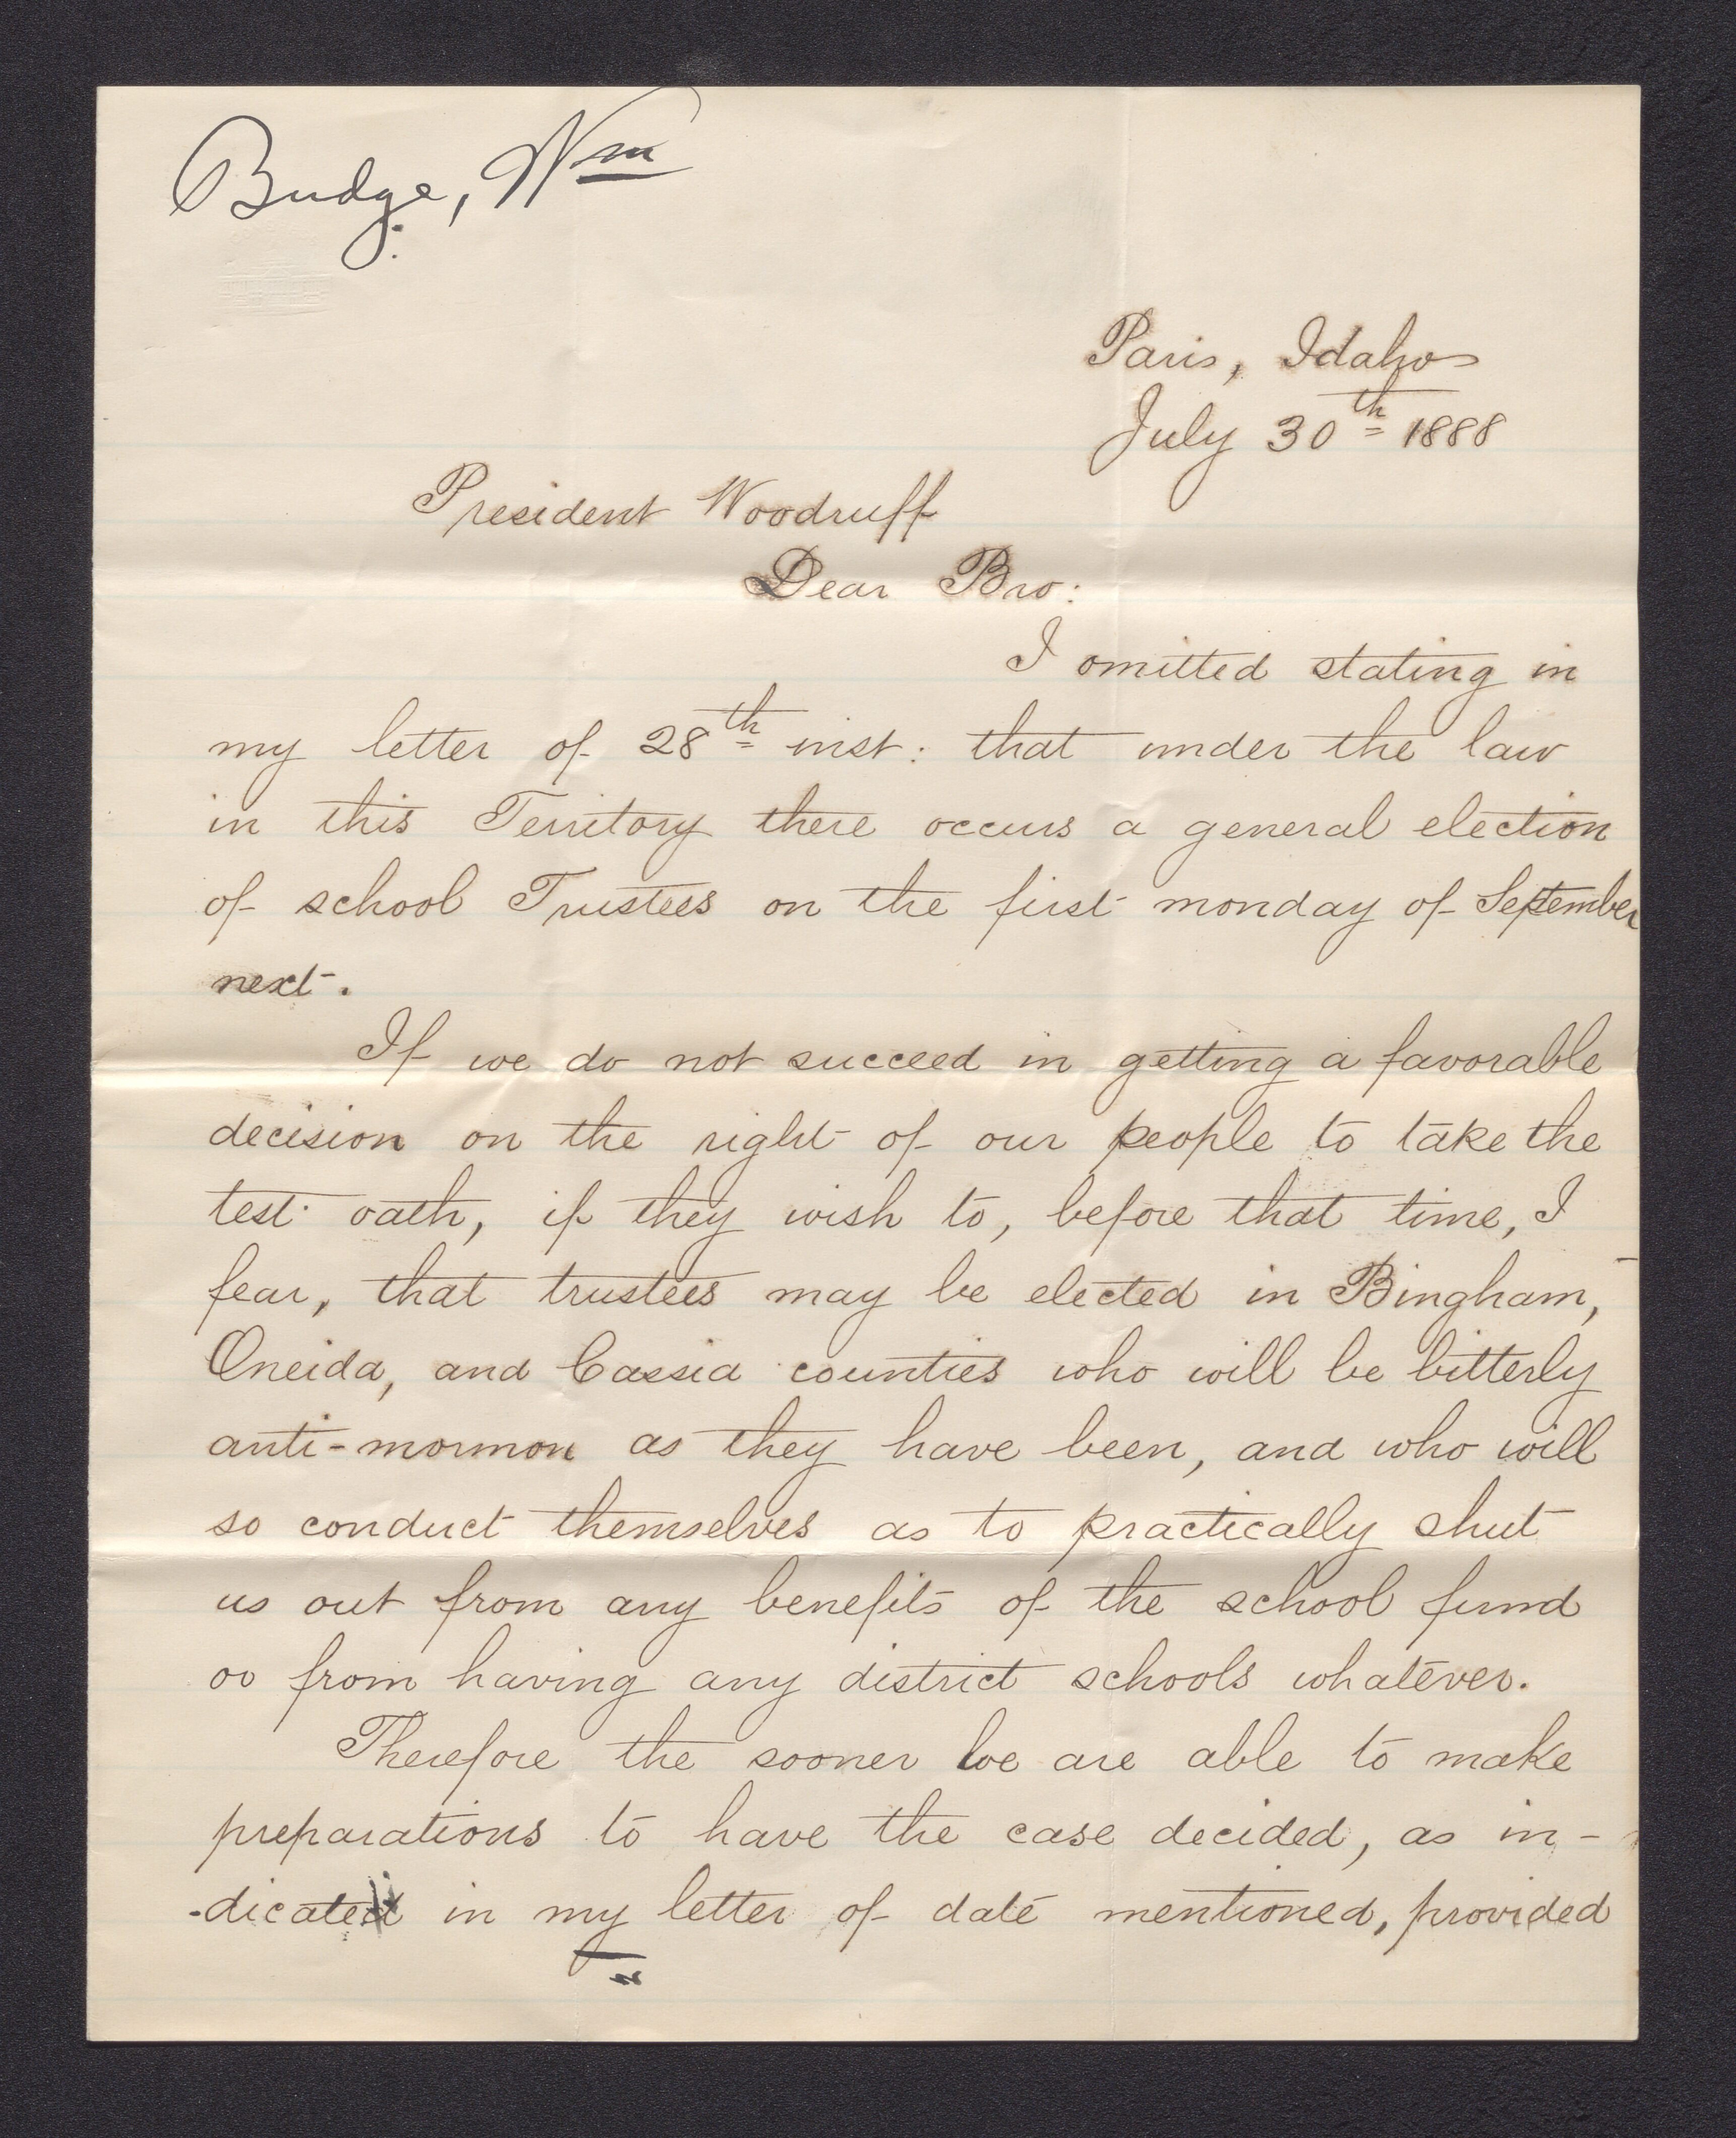 Budge, Wm
Paris, Idaho
July 30th 1888
President Woodruff
Dear Bro:
I omitted stating in
my letter of 28th inst: that under the law
in this Territory there occurs a general election
of school Trustees on the first monday of September
next.
If we do not succeed in getting a favorable
decision on the right of our people to take the
test oath, if they wish to, before that time, I
fear, that trustees may be elected in Bingham,
Oneida, and Cassia counties who will be bitterly
anti-mormon as they have been, and who will
so conduct themselves as to practically shut
us out from any benefits of the school fund
or from having any district schools whatever.
Therefore the sooner we are able to make
preparations to have the case decided, as in-
-dicated in my letter of date mentioned, provided